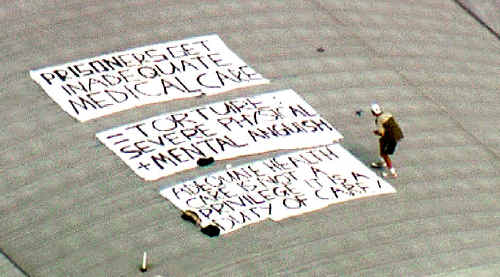 PRISONERS GET
INADEQUATE
MEDICAL CARE
= TORTURE,
SEVERE PHYSICAL
+ MENTAL ANGUISH
ADEQUATE HEALTH
CARE IS NOT A
PRIVILEGE IT IS A
DUTY OF CARE